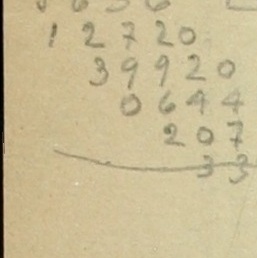 1 2 7 2 0
3 9 9 2 0
0 6 4 4
2 0 7
3 3